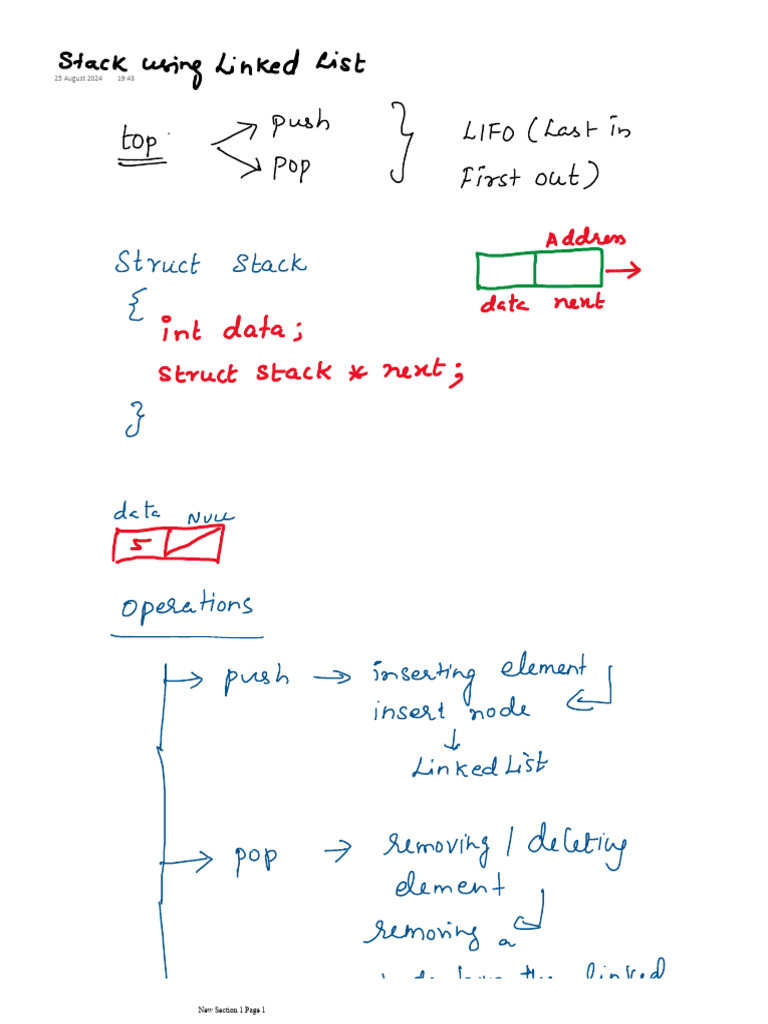 Stack using Linked List
25 August 2024 19:43
top push
pop
LIFO (Last in
First out)
Struct Stack
{
int data;
struct stack * next;
}
Address
data next
data NULL
5
operations
push → inserting element
insert node
↓
Linked List
pop → removing / deleting
element
removing a
linked
New Section 1 Page 1